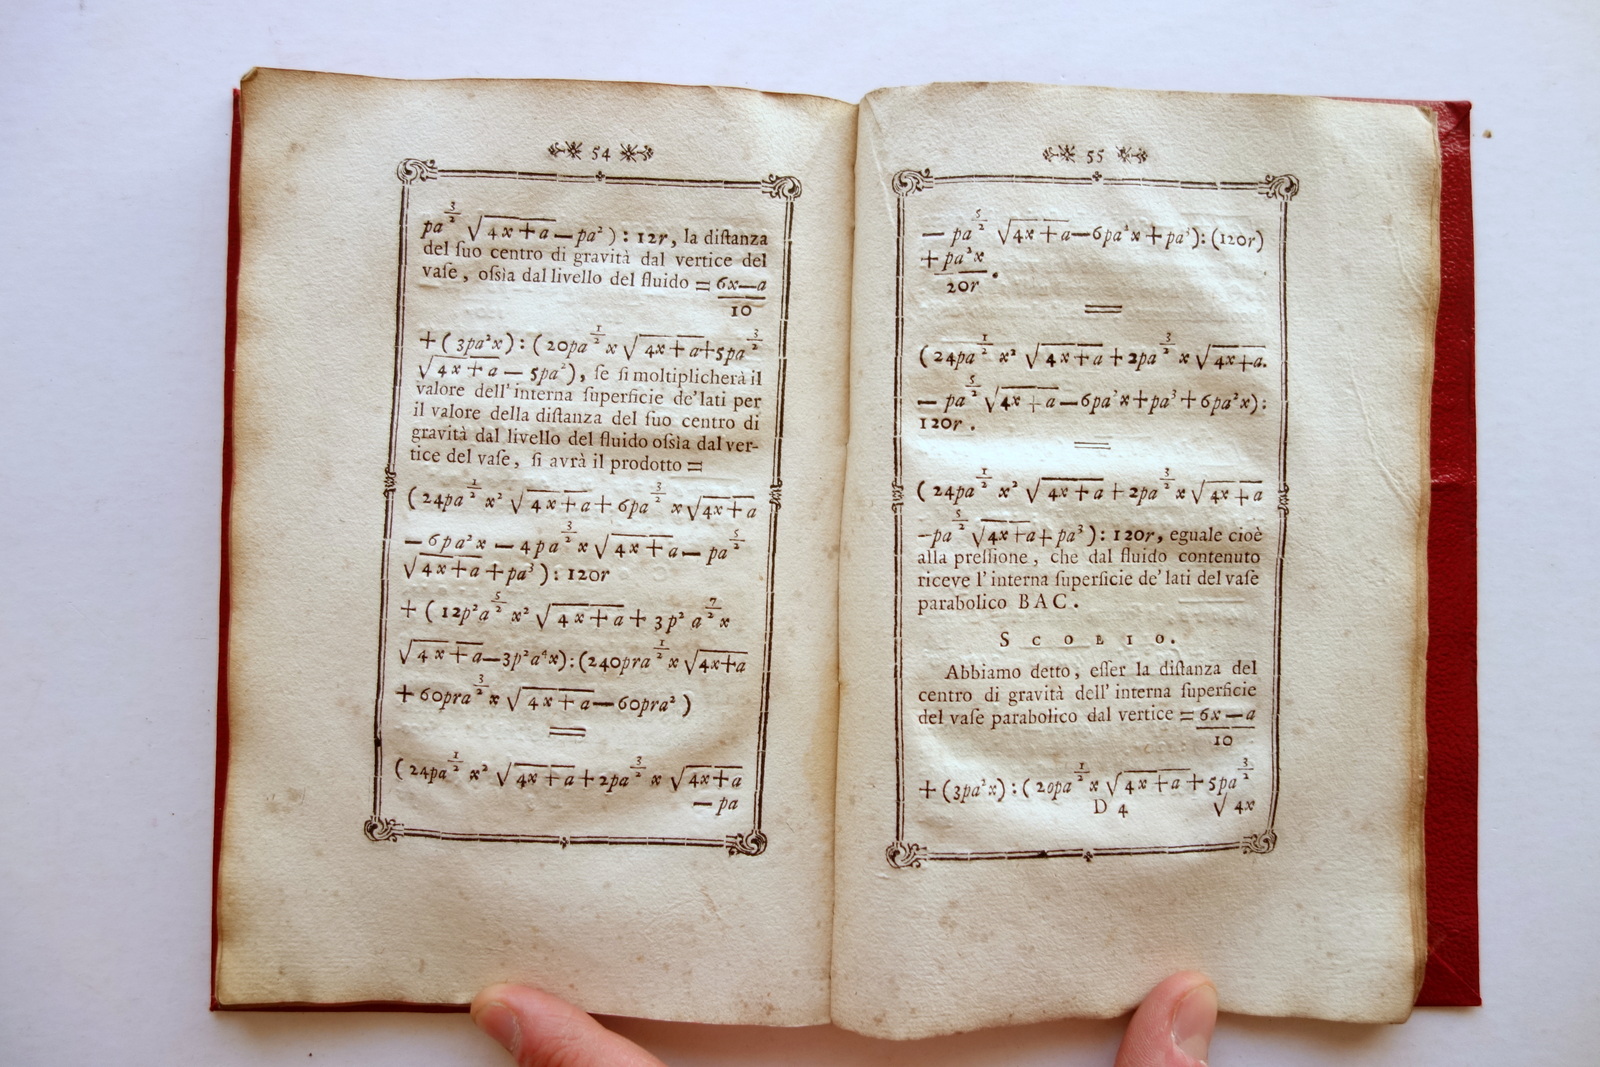 54
pa^{3/2} √4x+a — pa²) : 12r, la diſtanza
del ſuo centro di gravità dal vertice del
vaſe, oſsìa dal livello del fluido = 6x—a
10
+ (3pa²x) : (20pa^{1/2} x √4x+a+5pa^{3/2}
√4x+a — 5pa²), ſe ſi moltiplicherà il
valore dell'interna ſuperficie de'lati per
il valore della diſtanza del ſuo centro di
gravità dal livello del fluido oſsìa dal ver-
tice del vaſe, ſi avrà il prodotto =
(24pa^{1/2} x² √4x+a + 6pa^{3/2} x√4x+a
— 6pa²x — 4pa^{3/2} x √4x+a — pa^{5/2}
√4x+a+pa³) : 120r
+ (12p²a^{5/2} x² √4x+a + 3p² a^{7/2} x
√4x+a—3p²a⁴x):(240pra^{1/2} x √4x+a
+ 60pra^{3/2} x √4x+a—60pra²)
=
(24pa^{1/2} x² √4x+a+2pa^{3/2} x √4x+a
— pa
55
— pa^{5/2} √4x+a—6pa²x+pa³):(120r)
+ pa²x
20r.
=
(24pa^{1/2} x² √4x+a + 2pa^{3/2} x √4x+a.
— pa^{5/2}√4x+a—6pa²x+pa³+6pa²x):
120r.
=
(24pa^{1/2} x² √4x+a + 2pa^{3/2} x √4x+a
—pa^{5/2} √4x+a+pa³) : 120r, eguale cioè
alla preſſione, che dal fluido contenuto
riceve l'interna ſuperficie de'lati del vaſe
parabolico BAC.
SCOLIO.
Abbiamo detto, eſſer la diſtanza del
centro di gravità dell'interna ſuperficie
del vaſe parabolico dal vertice = 6x—a
10
+ (3pa²x) : (20pa^{1/2} x √4x+a + 5pa^{3/2}
D 4 √4x